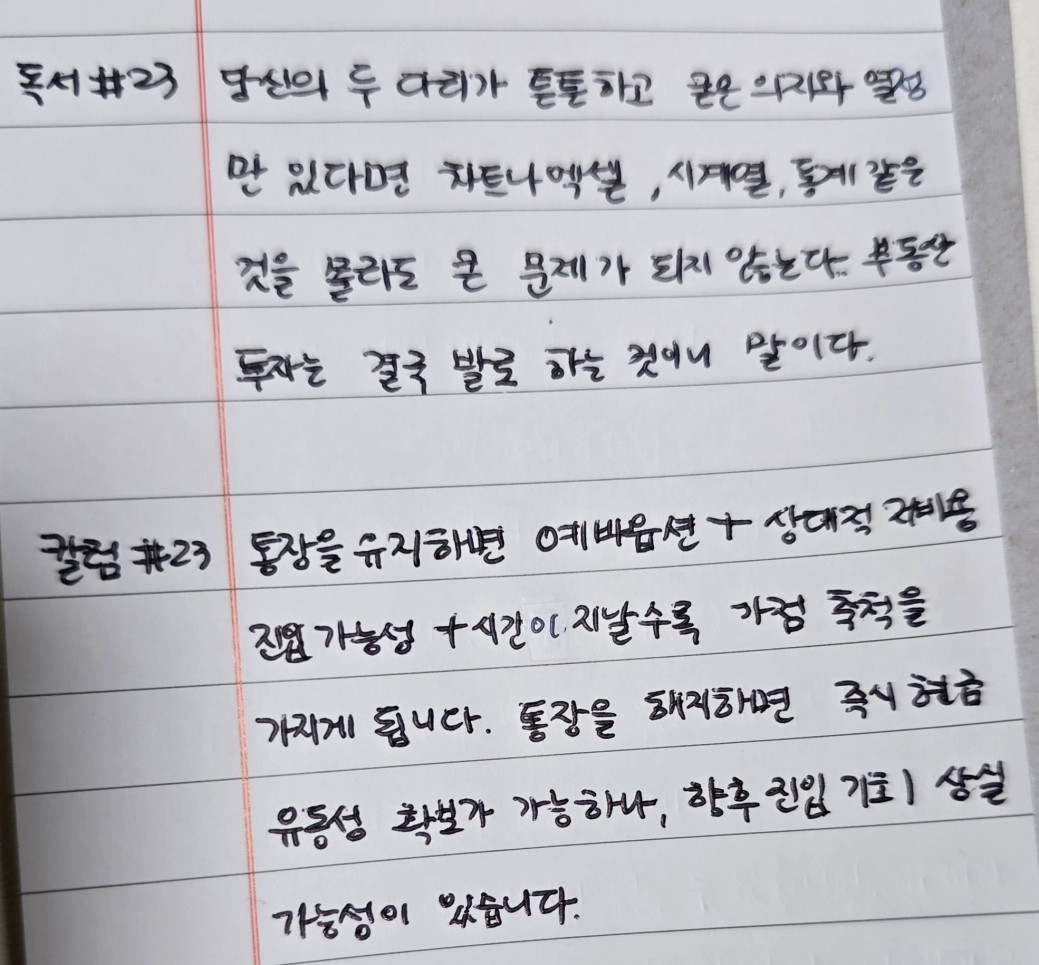 독서 #23 당신의 두 다리가 튼튼하고 굳은 의지와 열정
만 있다면 차트나 엑셀, 시계열, 통계 같은
것을 몰라도 큰 문제가 되지 않는다. 부동산
투자는 결국 발로 하는 것이니 말이다.
칼럼 #23 통장을 유지하면 예비옵션 + 상대적 저비용
진입 가능성 + 시간이 지날수록 가점 축적을
가지게 됩니다. 통장을 해지하면 즉시 현금
유동성 확보가 가능하나, 향후 진입 기회 상실
가능성이 있습니다.